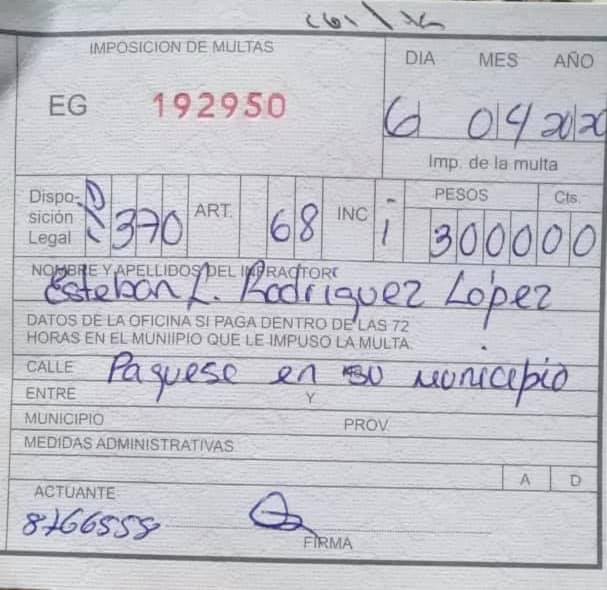 IMPOSICION DE MULTAS
DIA MES AÑO
EG 192950
6 04 2020
Imp. de la multa
Dispo-
sición
Legal
DL 370 ART. 68 INC i
PESOS Cts.
3000 00
NOMBRE Y APELLIDOS DEL INFRACTOR
Esteban L. Rodriguez López
DATOS DE LA OFICINA SI PAGA DENTRO DE LAS 72
HORAS EN EL MUNIIPIO QUE LE IMPUSO LA MULTA.
CALLE Paguese en su municipio
ENTRE Y
MUNICIPIO PROV.
MEDIDAS ADMINISTRATIVAS
A D
ACTUANTE
FIRMA